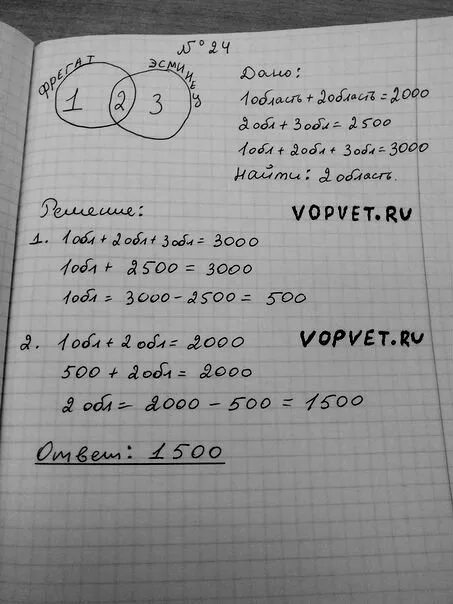 N° 24
ФРЕГАТ
ЭСМИНЕЦ
1 2 3
Дано:
1область + 2область = 2000
2обл + 3обл = 2500
1обл + 2обл + 3обл = 3000
Найти: 2 область.
Решение:
VOPVET.RU
1. 1обл + 2обл + 3обл = 3000
1обл + 2500 = 3000
1обл = 3000 - 2500 = 500
2. 1обл + 2 обл = 2000
VOPVET.RU
500 + 2обл = 2000
2 обл = 2000 - 500 = 1500
Ответ: 1500